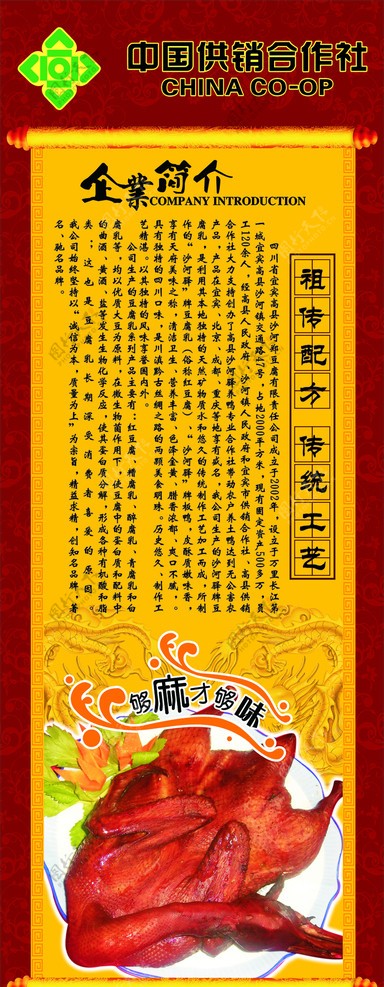 中国供销合作社
CHINA CO-OP
企業简介
COMPANY INTRODUCTION
祖传配方 传统工艺
四川省宜宾高县沙河郑豆腐有限责任公司成立于2002年，设立于万里长江第
一城宜宾高县沙河镇交通路47号，占地2000平方米，现有固定资产500多万，员
工120余人，经高县人民政府、沙河镇人民政府和宜宾市供销合作社、高县供销
合作社大力支持创办了高县沙河驿养鸭专业合作社带动农户养土鸭达到无公害农
产品，产品在宜宾、北京、成都、重庆等地享有盛名，我公司生产的沙河驿牌豆
腐乳，是利用其本地独特的天然矿物质水和悠久的传统制作工艺加工而成，所制
作的“沙河驿”牌豆腐乳（俗称红豆腐）“沙河驿”牌板鸭，皮酥质嫩味香，
享有天府美味之称，清洁卫生、营养丰富、色泽金黄、腊香浓郁、爽口不腻。
具有独特的四川口味，是川滇黔古丝绸之路的两颗美食明珠。历史悠久、制作工
艺精湛。以其独特的风味享誉国内外。
公司生产的豆腐乳系列产品主要有：红豆腐、糟腐乳、醉腐乳、青腐乳和白
腐乳等，均以优质大豆为原料，在微生物菌作用下，使豆腐中的蛋白质和配料中
的曲酒、黄酒、盐等发生生物化学反应，使其蛋白质分解，形成各种有机酸和脂
类；这也是豆腐乳长期深受消费者喜爱的原因。
我公司始终坚持以“诚信为本、质量为上”为宗旨，精益求精，创知名品牌，著
名、驰名品牌。
够麻才够味